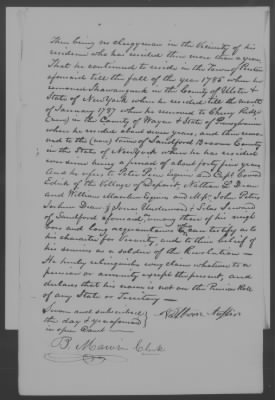 There being no clergyman in the vicinity of his
residence who has resided there more than a year
That he continued to reside in the Town of
aforesaid till the fall of the year 1785 when he
removed Shawangunk in the County of Ulster &
State of New York where he resided till the month
of January 1787 when he removed to Cherry Ridge
(now) in the County of Wayne & State of Pennsylvania
where he resided about seven years, and then remo-
ved to the (now) town of Sandford Broome County
in the State of New York where he has resided
ever since being a period of about forty five years
And he refers to Peter Pine Esquire and Capt Conrad
Edick of the Village of Deposit, Nathan L. Dean
and William Macklin Esquires and Mr John Peters
Joshua Dean & Jonas Underwood & Silas Seward
of Sandford aforesaid, among those of his neigh
bors and long acquaintance who can testify as to
his character for veracity, and to their belief of
his services as a soldier of the Revolution —
He hereby relinquishes every claim whatever to a
pension or annuity except the present, and
declares that his name is not on the Pension Roll
of any State or Territory —
Sworn and subscribed
the day & year aforesaid
in open Court —
B. Marvin Clerk